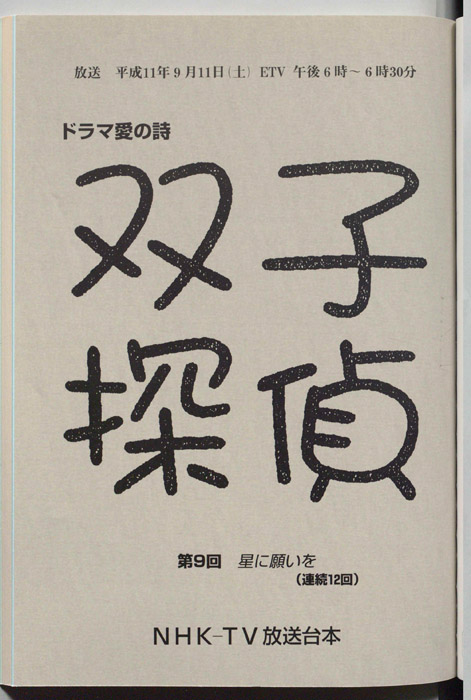 放送　平成11年9月11日(土)　ETV　午後6時～6時30分
ドラマ愛の詩
双子
探偵
第9回　星に願いを
(連続12回)
NHK-TV放送台本